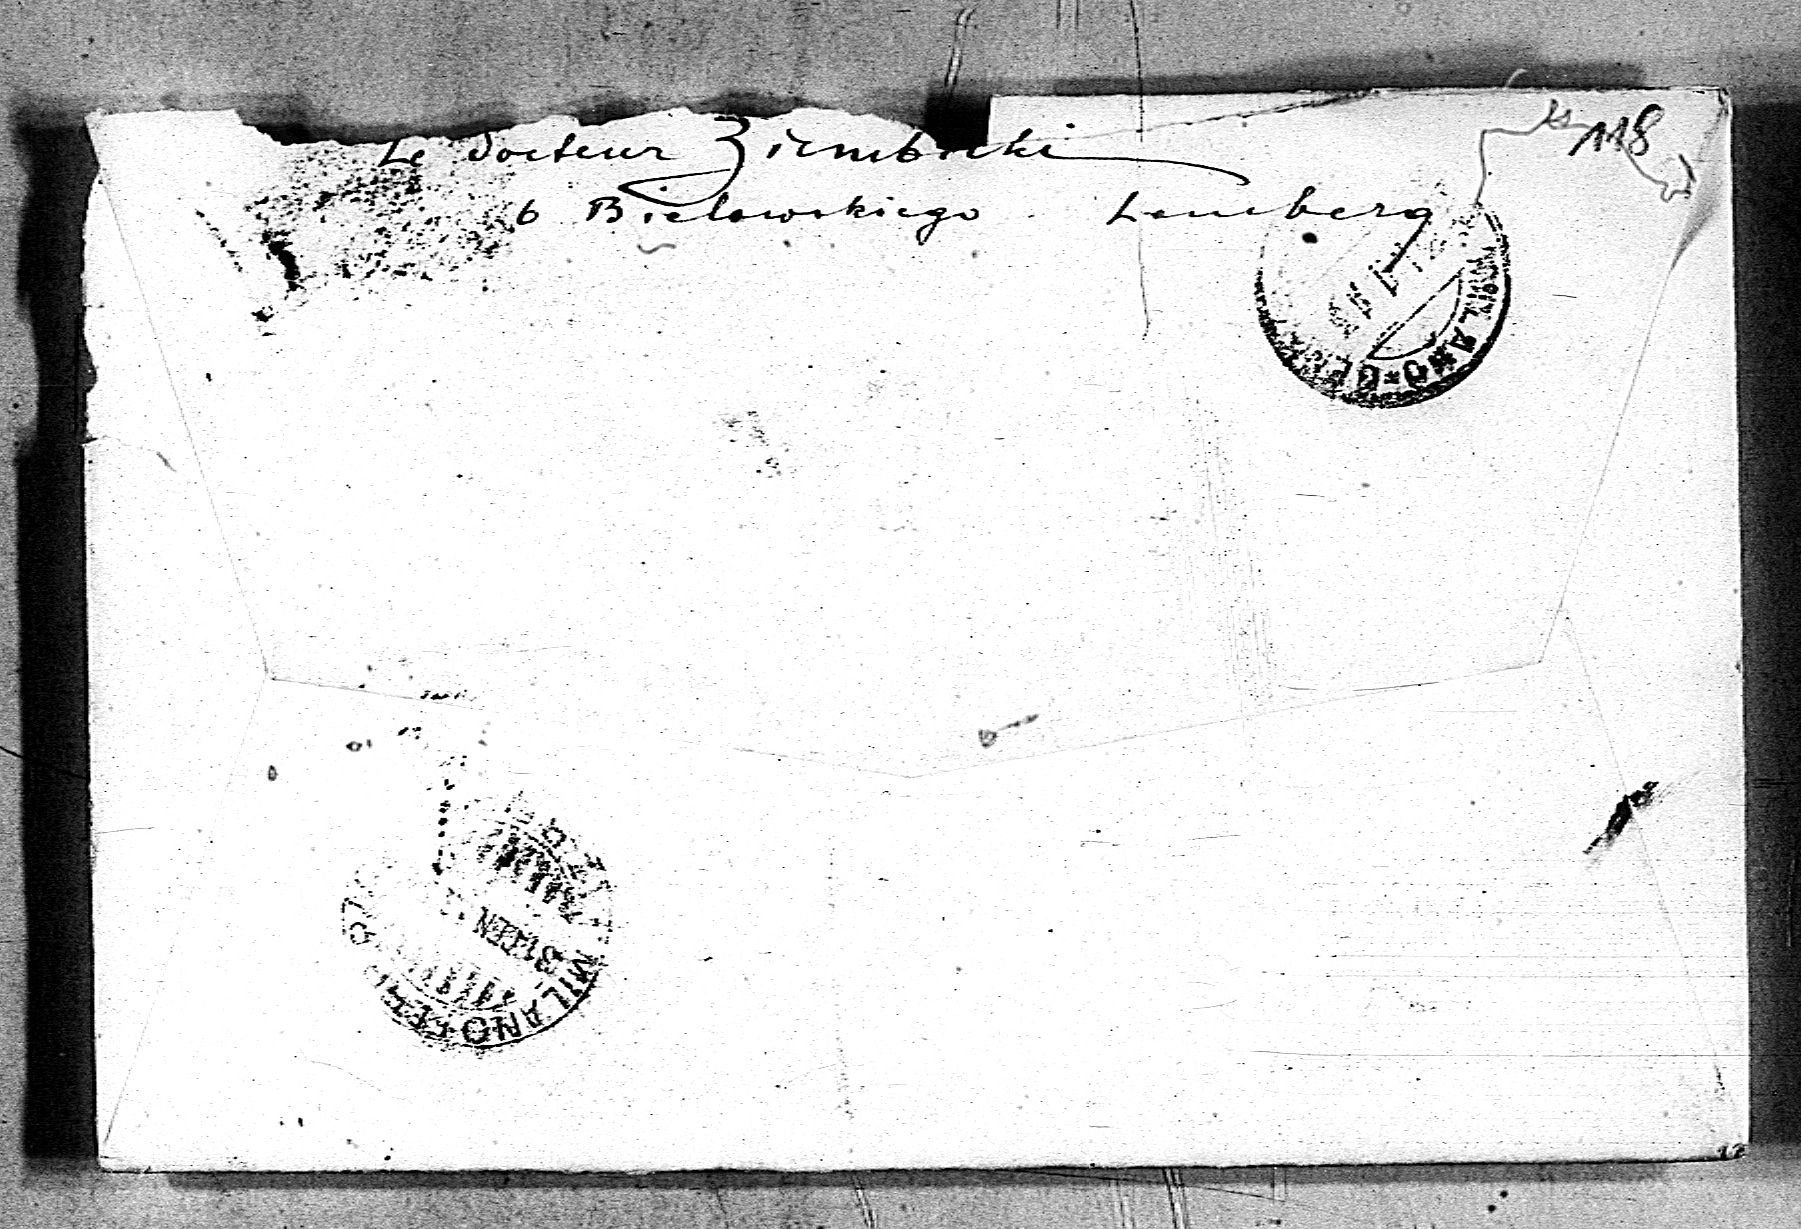 Le Docteur Ziembicki
6 Bielowskiego Lemberg
118
MILANO
MILANO